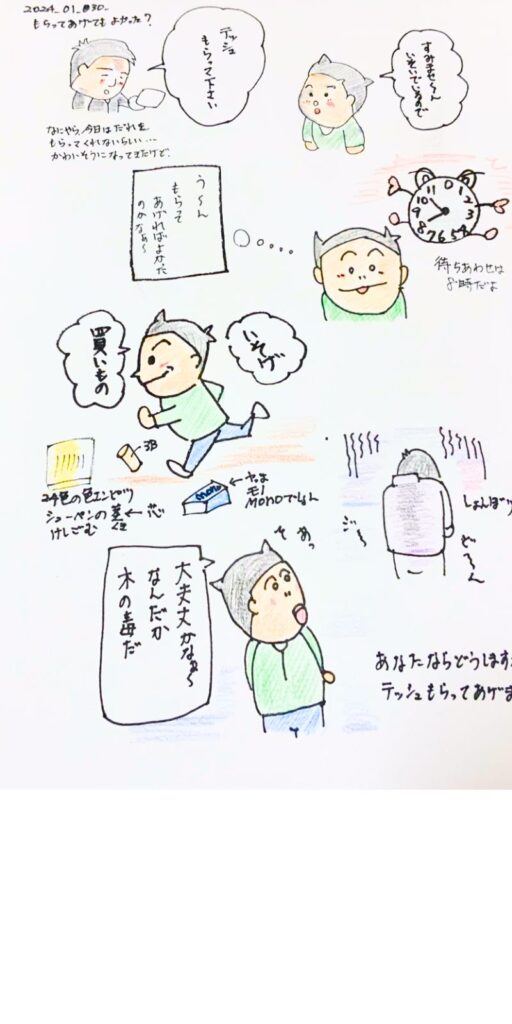 2024_01_#30_
もらってあげてもよかった?
テッシュ
もらって下さい
すみませ〜ん
いそいでいるので
なにやら、今日はだれも
もらってくれないらしい…
かわいそうになってきたけど。
う〜ん
もらって
あげればよかった
のかなぁ〜
11 0 1
10 2
9 3
8 7 6 5 4
待ちあわせは
8時だよ
いそげ
買いもの
3B
24色の色エンピツ
シューペンの芯
けしごむ
mono
やっぱ
モノ
MONOでしょん
しょんぼり
ど〜ん
あっ
大夫丈かなぁ〜
なんだか
木の毒だ
あなたならどうします
テッシュもらってあげま